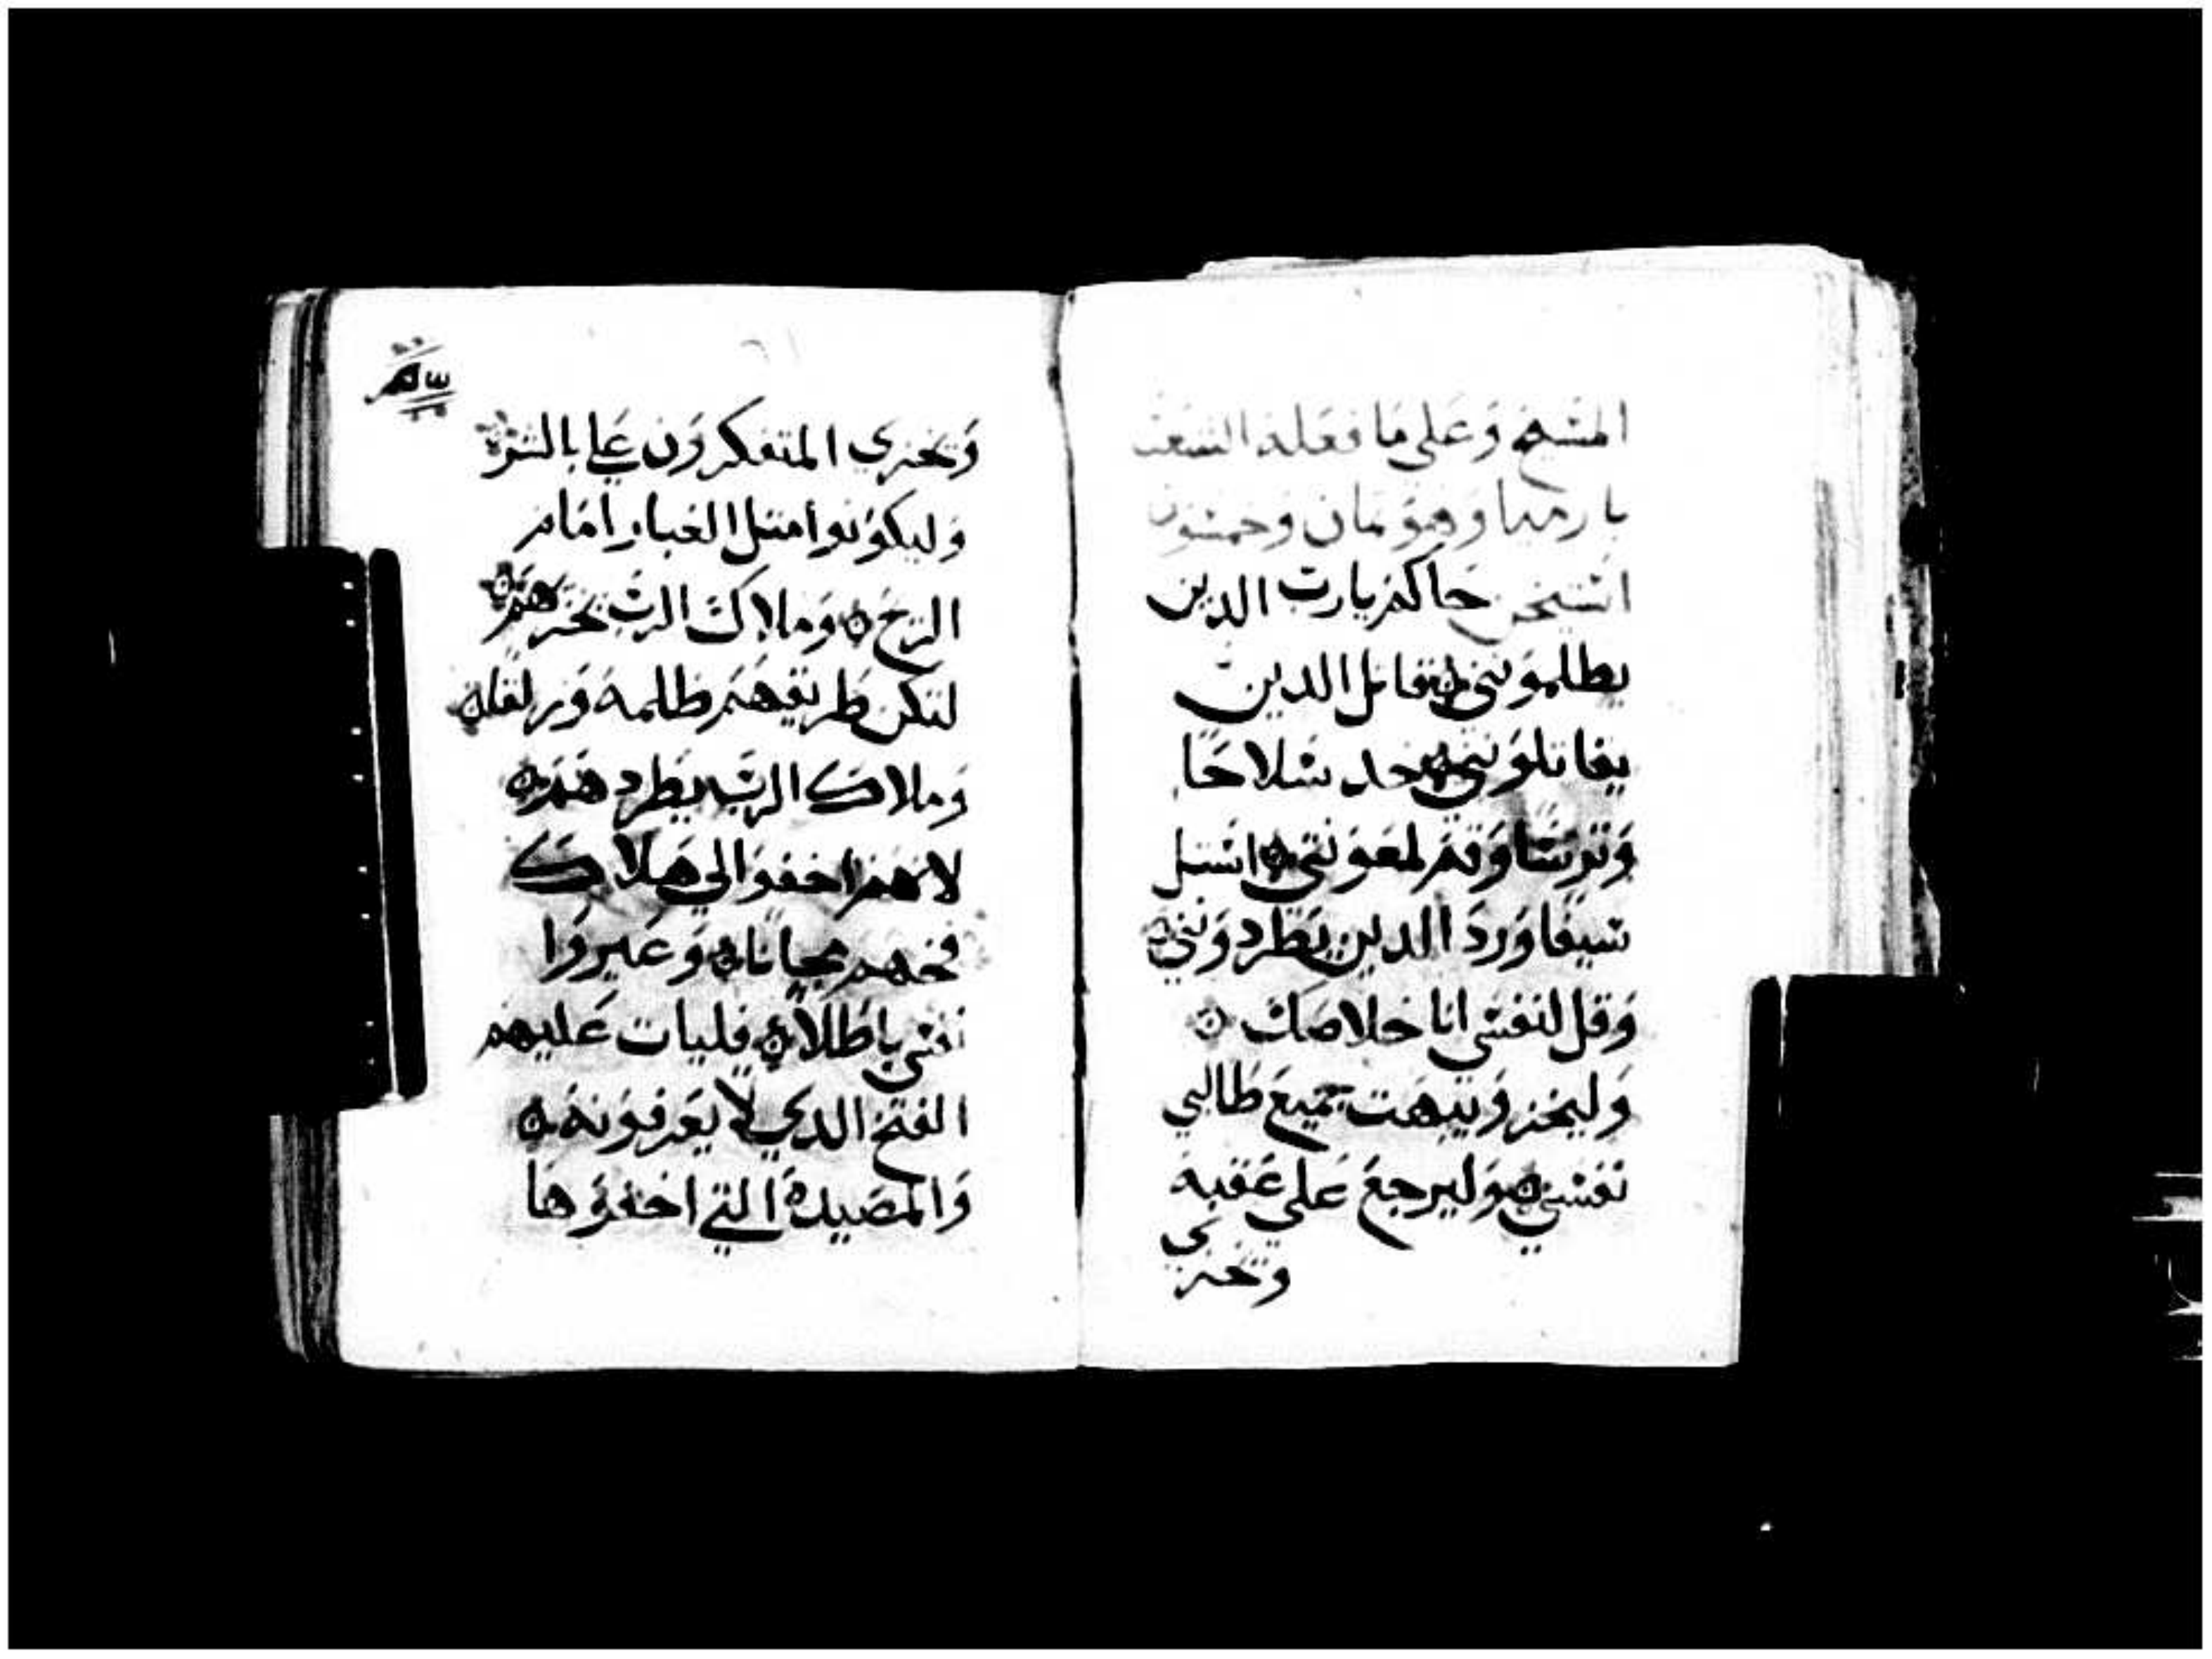 المسيح وعلى ما فعله الشعب
بارميا وهو تمان وخمسون
حاكم يارب الدين
يظلمونني ۞ قاتل الدين
يقاتلونني ۞ خد سلاحًا
وترسًا وقم لمعونتي ۞ استل
سيفا ورد الدين يطردونني ۞
وقل لنفسي انا خلاصك ۞
وليخز ويبهت جميع طالبي
نفسي ۞ وليرجع على عقبه
ويخزي
ويخزي المتفكرون علي بالسوء
وليكونوا مثل الغبار امام
الريح ۞ وملاك الرب يخزيهم ۞
لتكن طريقهم ظلمه وزلقله
وملاك الرب يطردهم ۞
لانهم اخفوا لي هلاك
فخهم مجانا ۞ وعيروا
نفسي باطلا ۞ فليات عليهم
الفخ الدي لا يعرفونه ۞
والمصيدة التي اخفوها